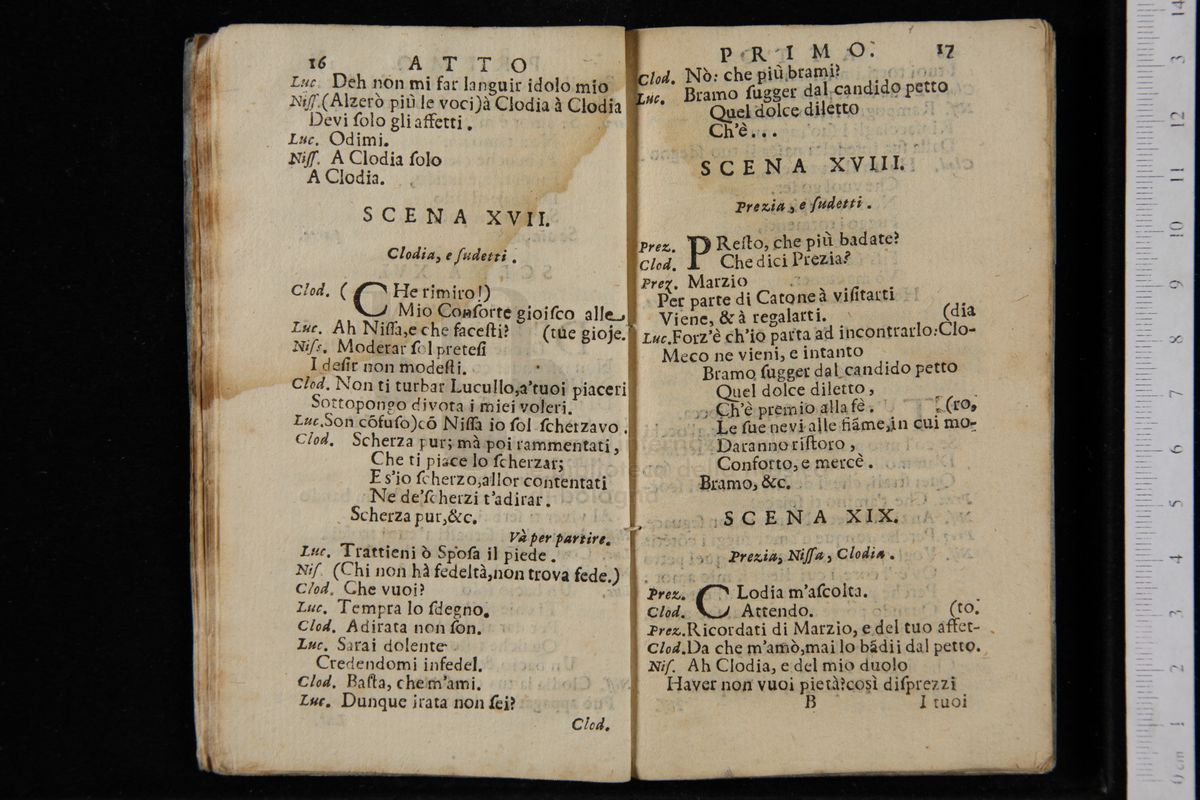 16 ATTO
Luc. Deh non mi far languir idolo mio
Niſſ. (Alzerò più le voci)à Clodia à Clodia
Devi ſolo gli affetti.
Luc. Odimi.
Niſſ. A Clodia ſolo
A Clodia.
SCENA XVII.
Clodia, e ſudetti.
Clod. ( CHe rimiro!)
Mio Conſorte gioiſco alle
Luc. Ah Niſſa,e che faceſti? (tue gioje.
Niſs. Moderar ſol preteſi
I deſir non modeſti.
Clod. Non ti turbar Lucullo,a'tuoi piaceri
Sottopongo divota i miei voleri.
Luc.Son cõfuſo)cõ Niſſa io ſol ſcherzavo.
Clod. Scherza pur; mà poi rammentati,
Che ti piace lo ſcherzar;
E s'io ſcherzo,allor contentati
Ne de'ſcherzi t'adirar.
Scherza pur,&c.
Và per partire.
Luc. Trattieni ò Spoſa il piede.
Niſ. (Chi non hà fedeltà,non trova fede.)
Clod. Che vuoi?
Luc. Tempra lo ſdegno.
Clod. Adirata non ſon.
Luc. Sarai dolente
Credendomi infedel.
Clod. Baſta, che m'ami.
Luc. Dunque irata non ſei?
Clod.
PRIMO. 17
Clod. Nò: che più brami?
Luc. Bramo ſugger dal candido petto
Quel dolce diletto
Ch'è...
SCENA XVIII.
Prezia, e ſudetti.
Prez. PReſto, che più badate?
Clod. Che dici Prezia?
Prez. Marzio
Per parte di Catone à viſitarti
Viene, & à regalarti. (dia
Luc.Forz'è ch'io parta ad incontrarlo:Clo-
Meco ne vieni, e intanto
Bramo ſugger dal candido petto
Quel dolce diletto,
Ch'è premio alla fè. (ro,
Le ſue nevi alle fiãme,in cui mo-
Daranno riſtoro,
Conforto, e mercè.
Bramo, &c.
SCENA XIX.
Prezia, Niſſa, Clodia.
Prez. CLodia m'aſcolta.
Clod. Attendo. (to.
Prez.Ricordati di Marzio, e del tuo affet-
Clod.Da che m'amò,mai lo bãdii dal petto.
Niſ. Ah Clodia, e del mio duolo
Haver non vuoi pietà?così diſprezzi
B I tuoi